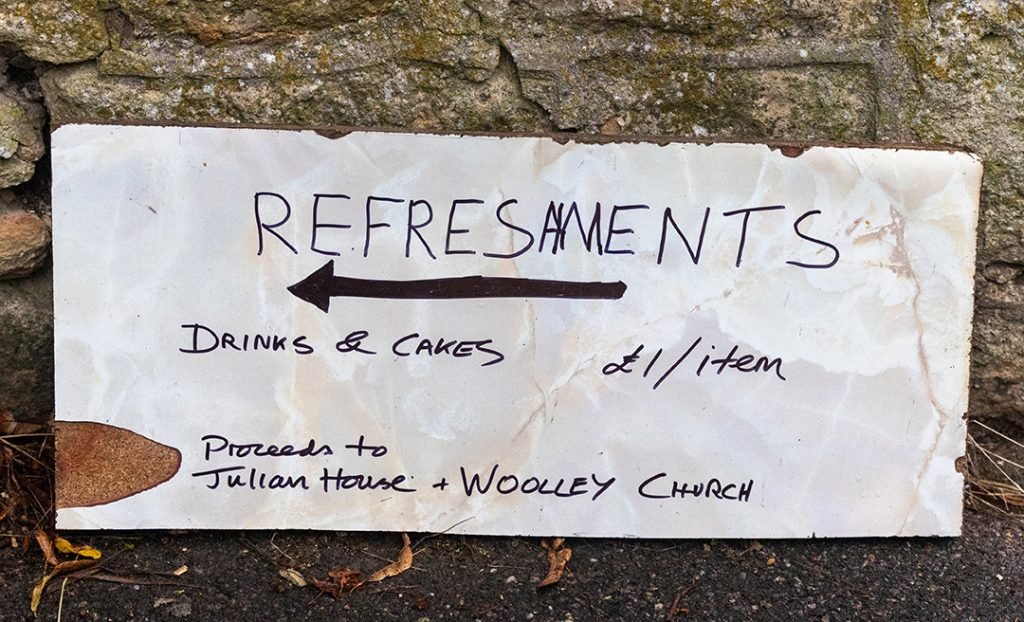 REFRESHMENTS
DRINKS & CAKES £1/item
Proceeds to
Julian House + WOOLLEY CHURCH